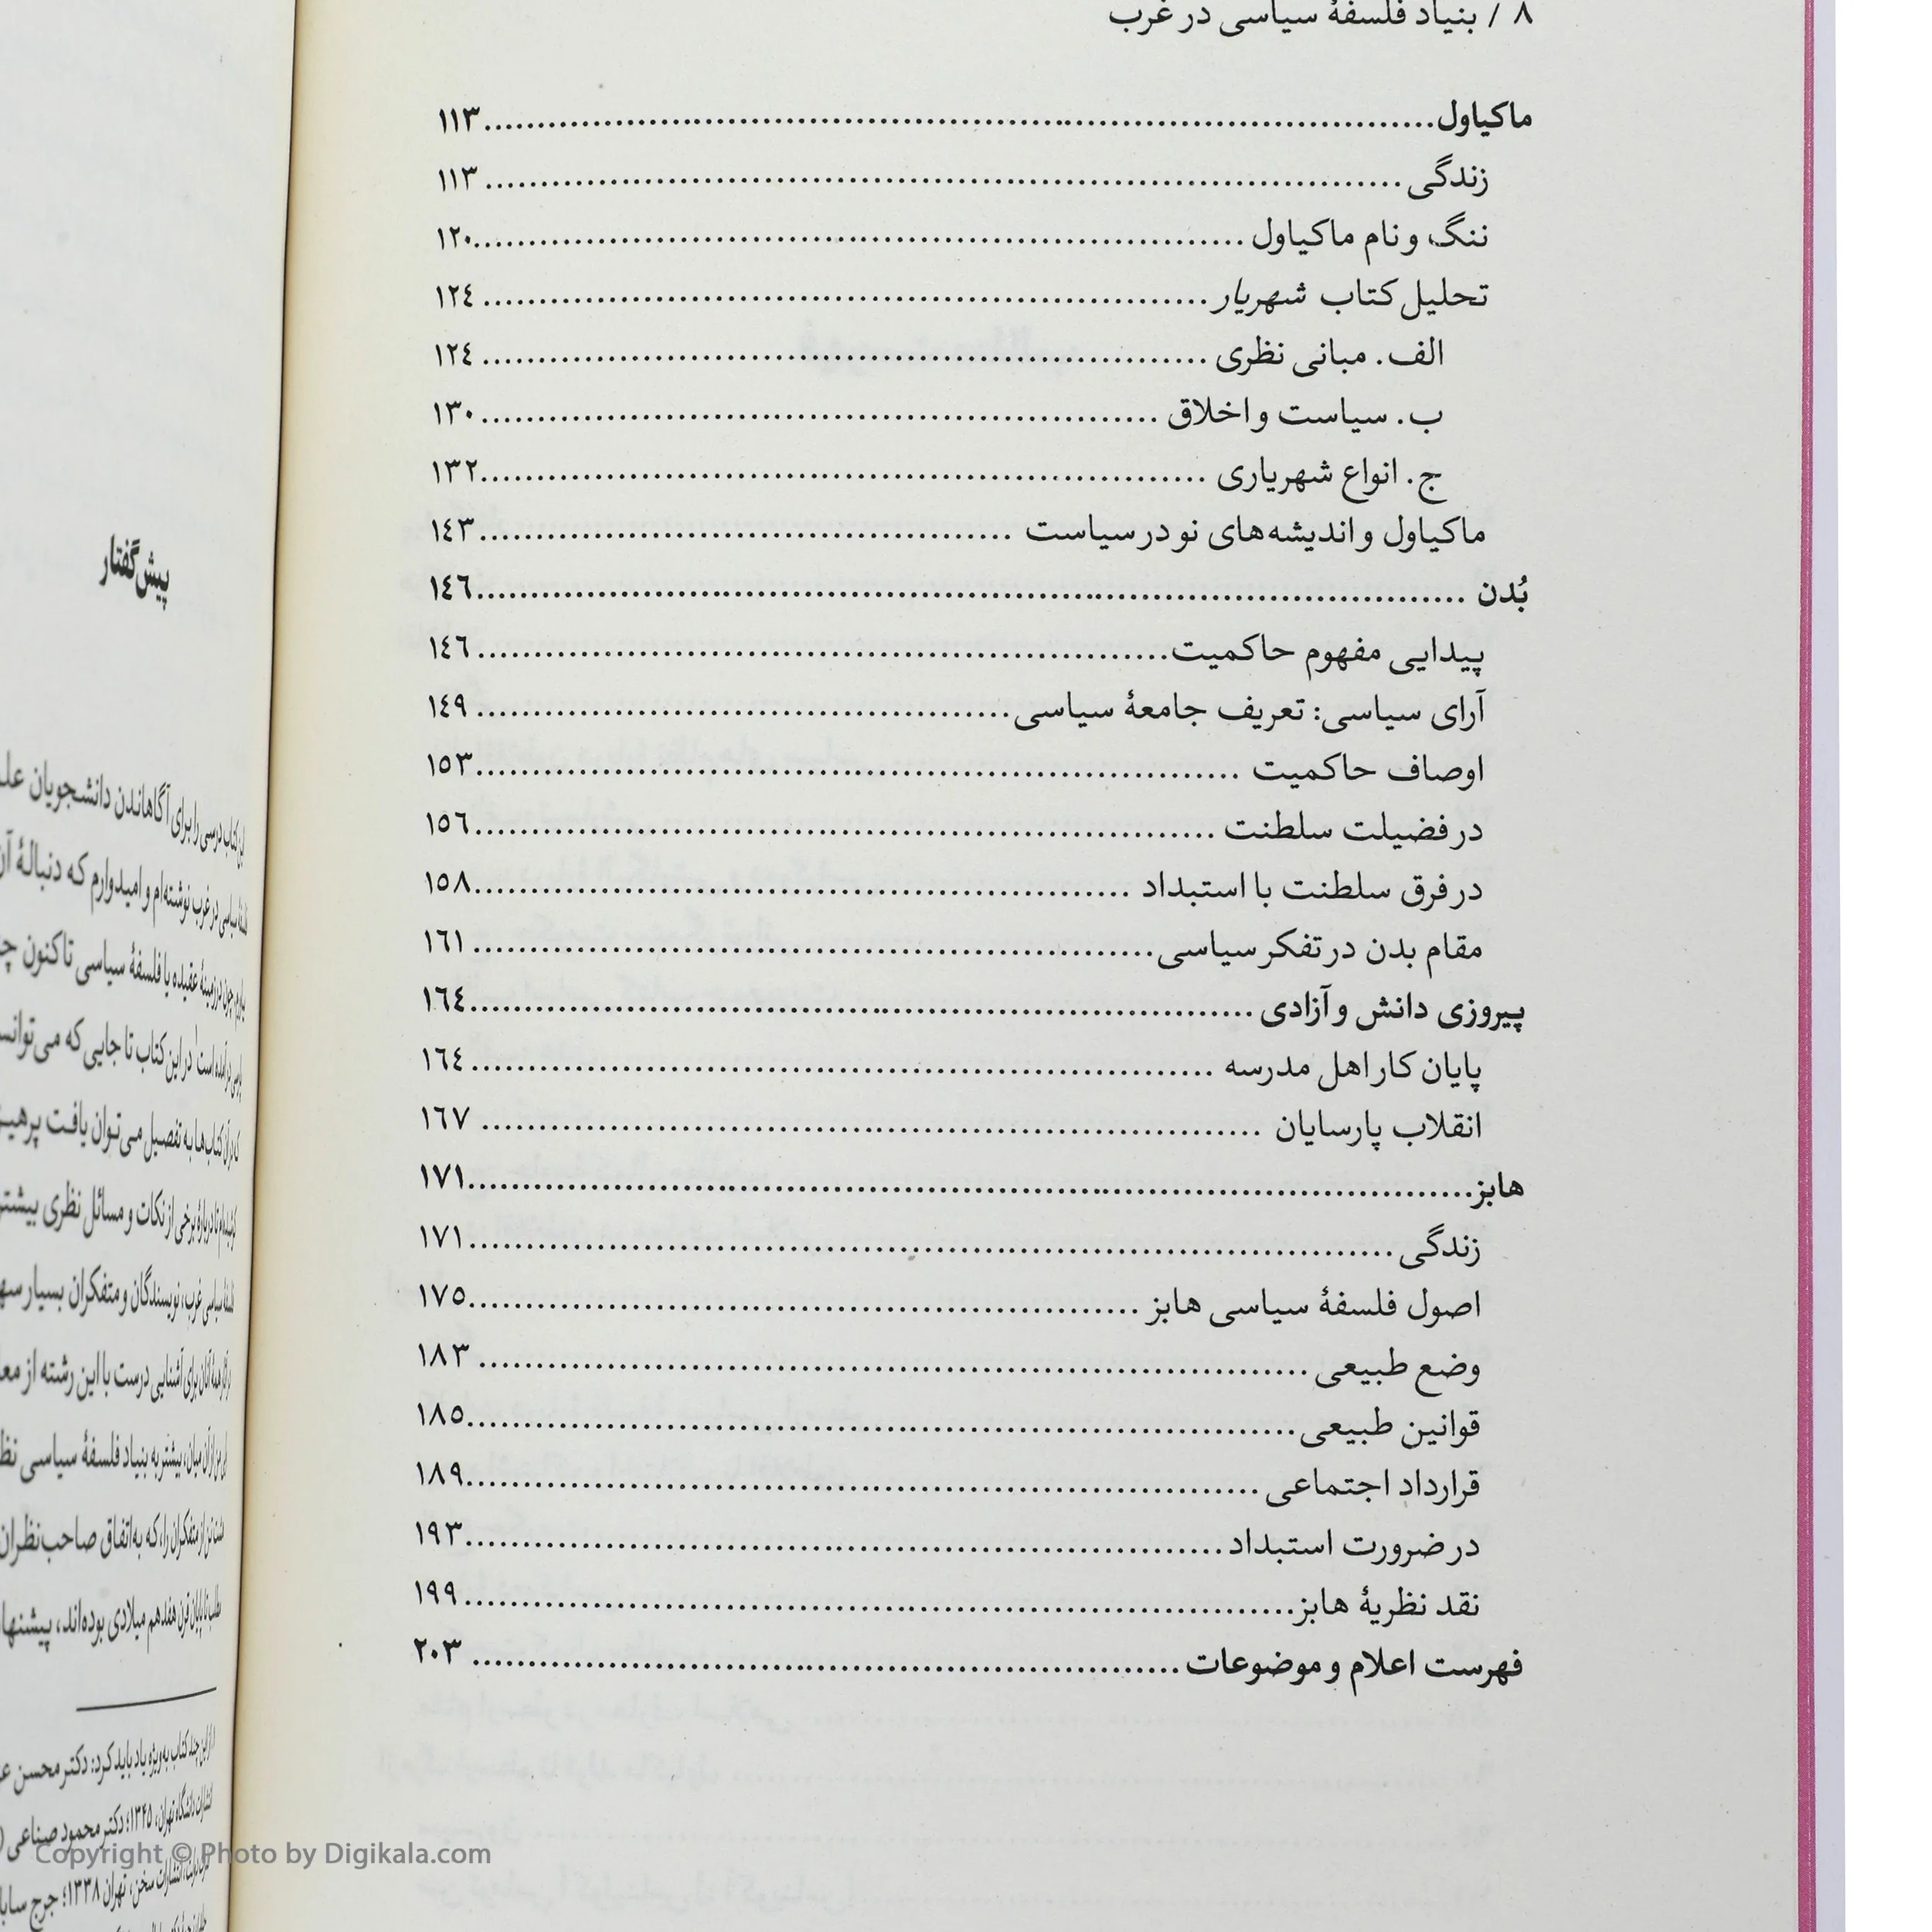 ۸ / بنیاد فلسفهٔ سیاسی در غرب
ماکیاول ۱۱۳
زندگی ۱۱۳
ننگ و نام ماکیاول ۱۲۰
تحلیل کتاب شهریار ۱۲۴
الف. مبانی نظری ۱۲۴
ب. سیاست و اخلاق ۱۳۰
ج. انواع شهریاری ۱۳۲
ماکیاول و اندیشه‌های نو در سیاست ۱۴۳
بُدن ۱۴۶
پیدایی مفهوم حاکمیت ۱۴۶
آرای سیاسی: تعریف جامعهٔ سیاسی ۱۴۹
اوصاف حاکمیت ۱۵۳
در فضیلت سلطنت ۱۵۶
در فرق سلطنت با استبداد ۱۵۸
مقام بدن در تفکر سیاسی ۱۶۱
پیروزی دانش و آزادی ۱۶۴
پایان کار اهل مدرسه ۱۶۴
انقلاب پارسایان ۱۶۷
هابز ۱۷۱
زندگی ۱۷۱
اصول فلسفهٔ سیاسی هابز ۱۷۵
وضع طبیعی ۱۸۳
قوانین طبیعی ۱۸۵
قرارداد اجتماعی ۱۸۹
در ضرورت استبداد ۱۹۳
نقد نظریهٔ هابز ۱۹۹
فهرست اعلام و موضوعات ۲۰۳
پیش‌گفتار
این کتاب درسی را برای آگاهاندن دانشجویان
فلسفهٔ سیاسی در غرب نوشته‌ام و امیدوارم که دنبالهٔ
چون در زمینهٔ عقیده یا فلسفهٔ سیاسی تاکنون
درآمده است در این کتاب تا جایی که
که در آن کتاب‌ها به تفصیل می‌توان یافت
کوشیده‌ام تا دربارهٔ برخی از نکات و مسائل نظری
فلسفهٔ سیاسی غرب، نویسندگان و متفکران بسیار
آنان برای آشنایی درست با این رشته از
از آن میان، بیشتر به بنیاد فلسفهٔ سیاسی
تن از متفکران را، که به‌اتفاق صاحب‌نظران
پایان قرن هفدهم میلادی بوده‌اند،
چند کتاب به‌ویژه یاد باید کرد: دکتر محسن
انتشارات دانشگاه تهران، ۱۳۴۵؛ دکتر محمود صناعی
انتشارات سخن، تهران ۱۳۳۸؛ جرج
Copyright © Photo by Digikala.com